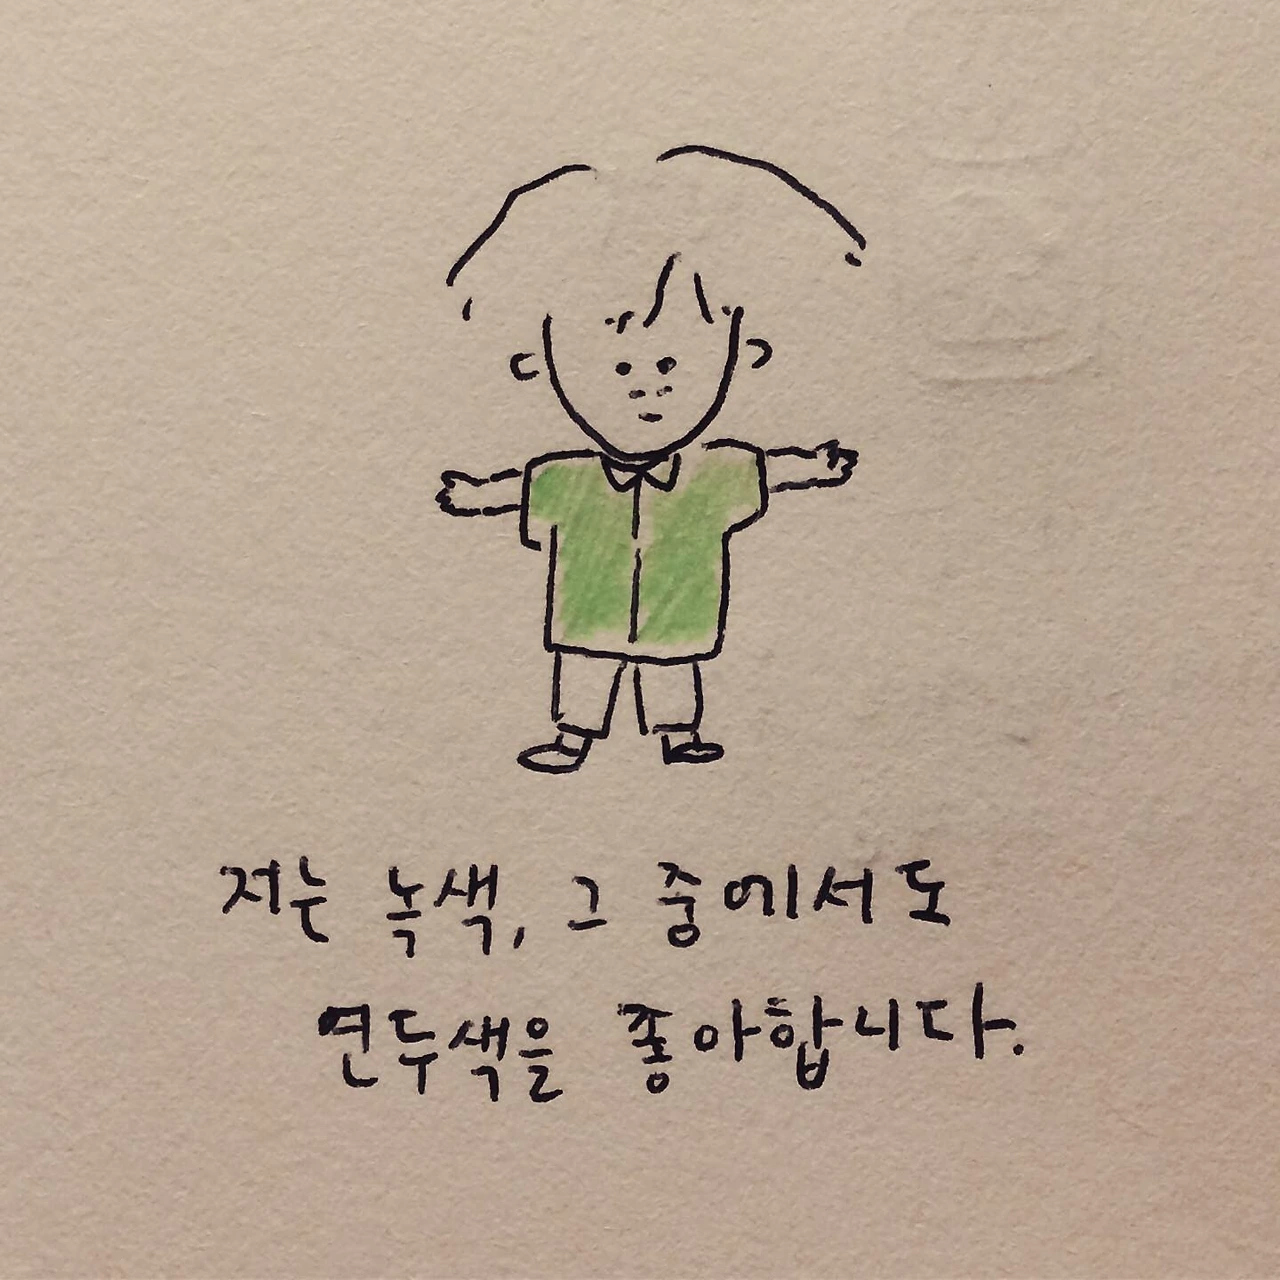 저는 녹색, 그 중에서도
연두색을 좋아합니다.